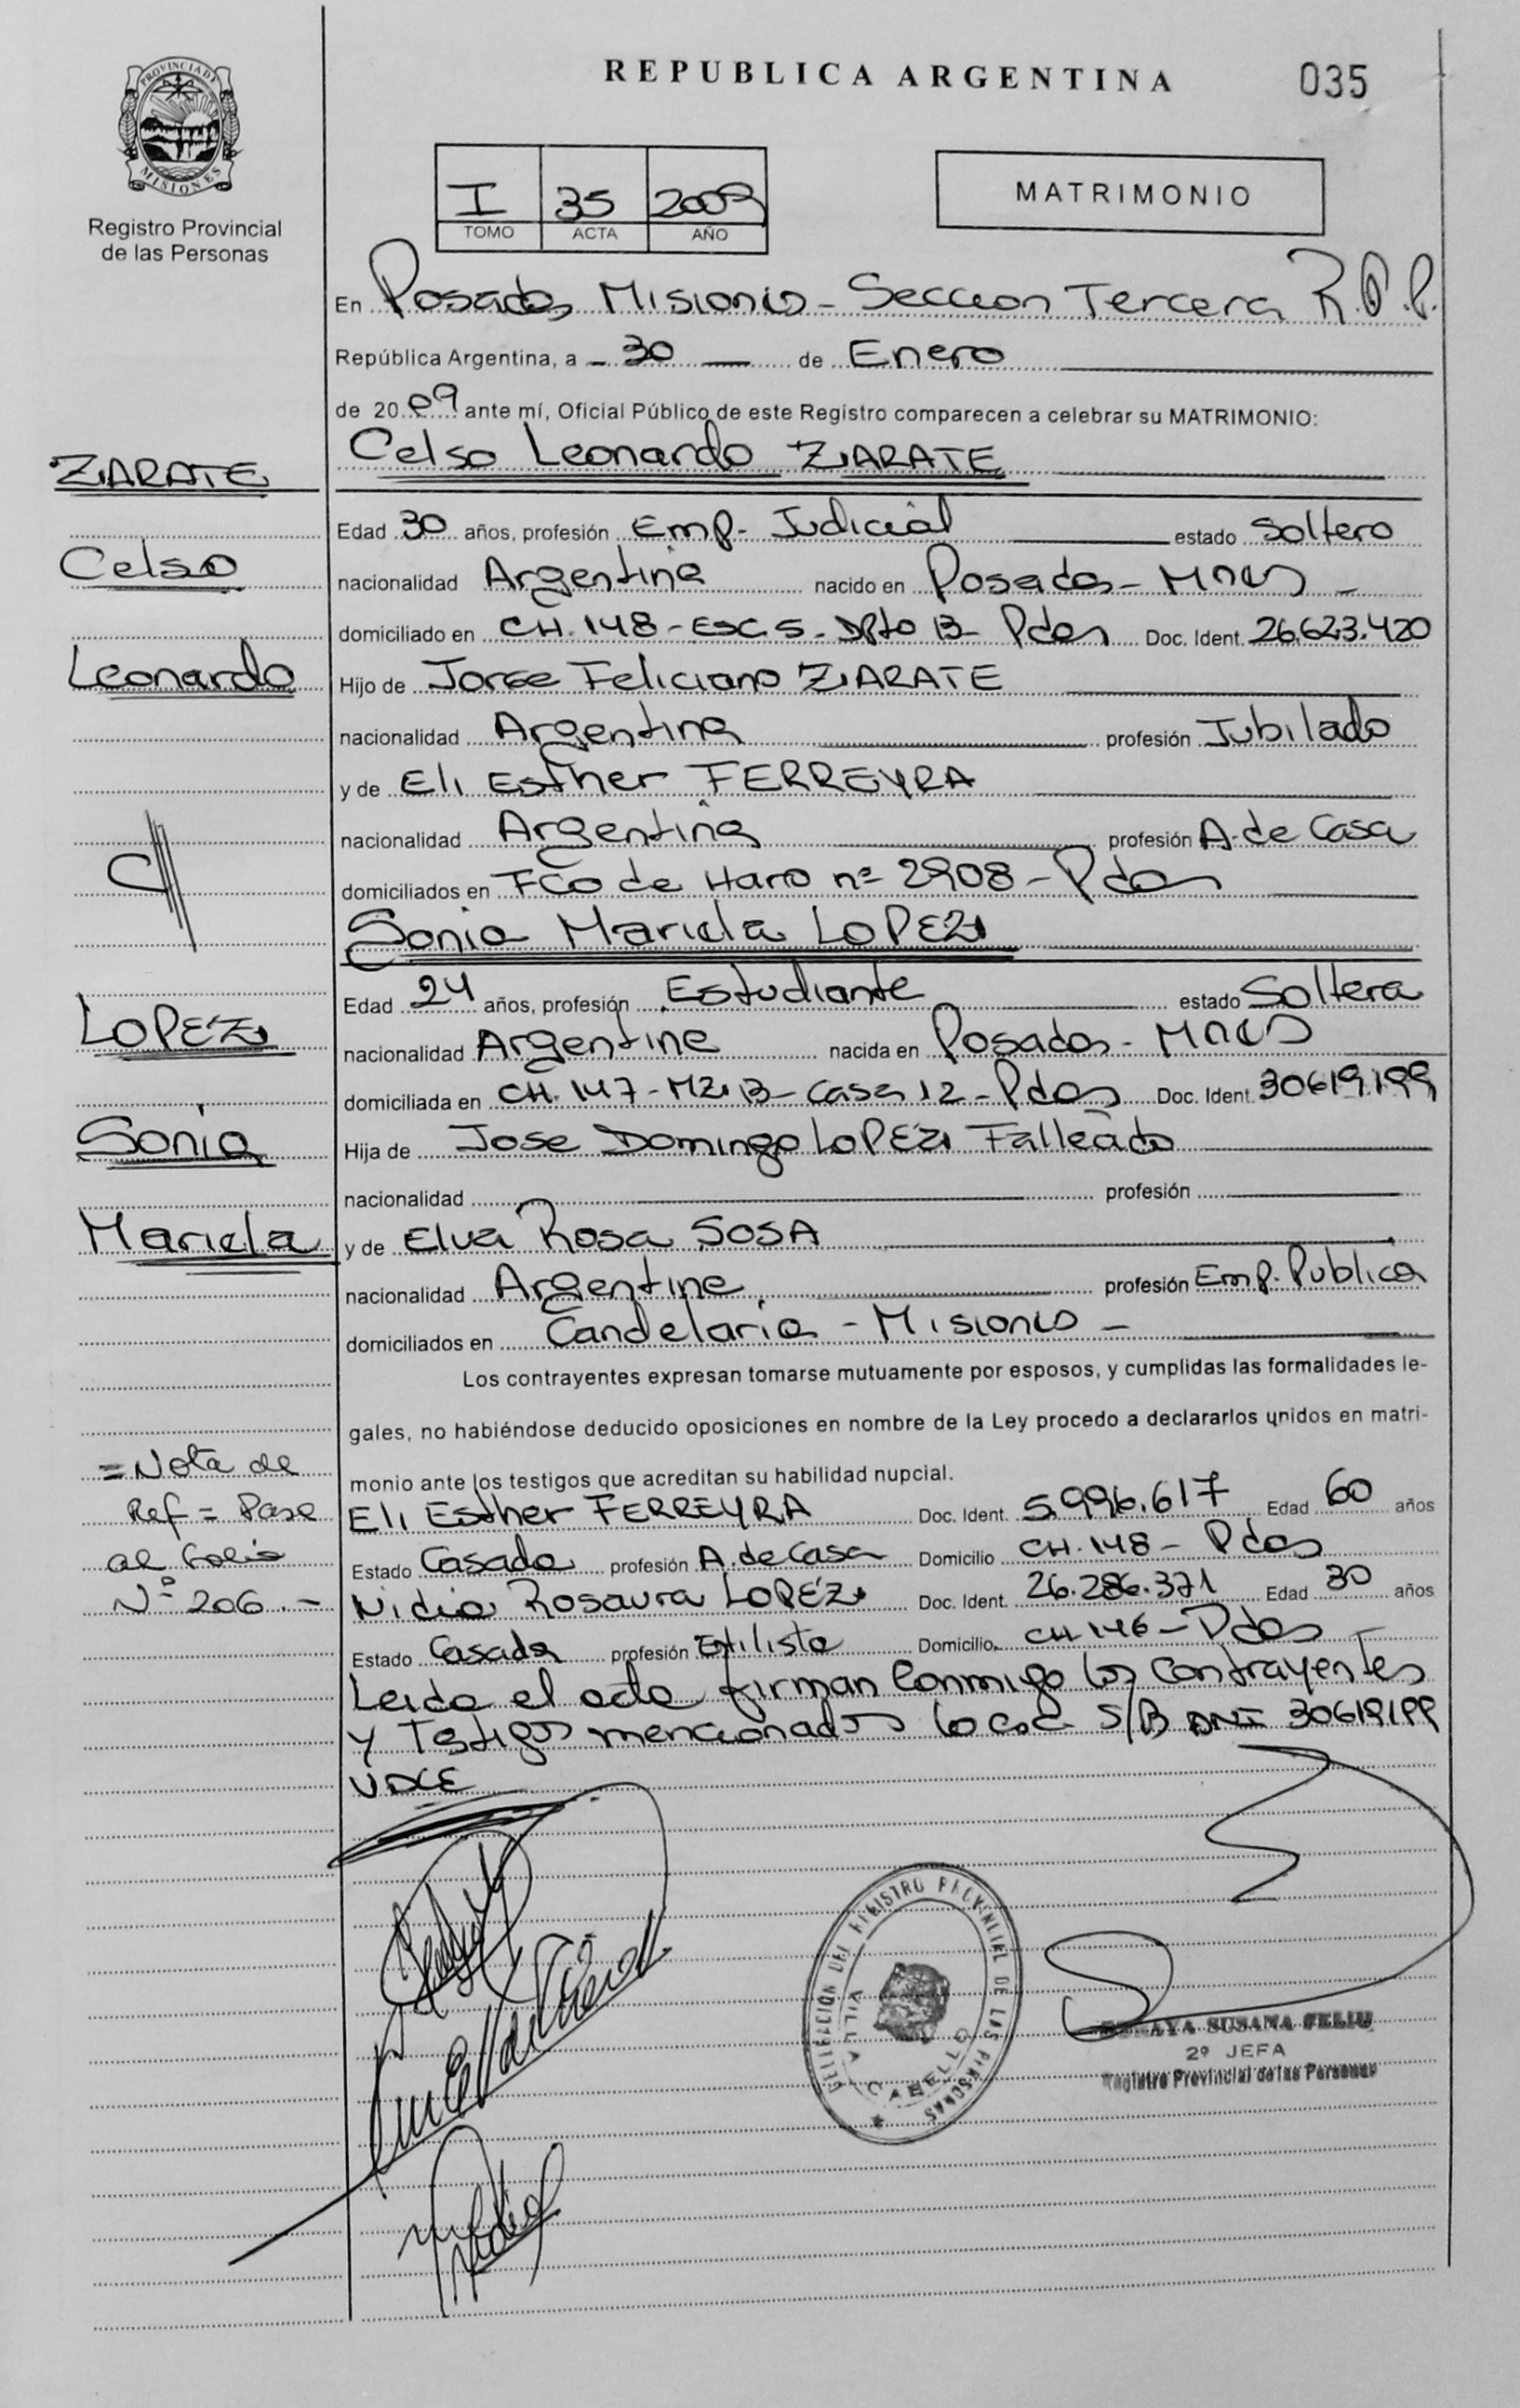 REPUBLICA ARGENTINA
035
PROVINCIA DE
MISIONES
Registro Provincial
de las Personas
I 35 2009
TOMO ACTA AÑO
MATRIMONIO
En Posadas, Misiones - Seccion Tercera R.P.P.
República Argentina, a - 30 — de Enero
de 2009 ante mí, Oficial Público de este Registro comparecen a celebrar su MATRIMONIO:
ZARATE
Celso Leonardo ZARATE
Edad 30 años, profesión Emp. Judicial estado Soltero
Celso
nacionalidad Argentina nacido en Posadas - Mnes -
domiciliado en CH. 148 - ESC. 5 - Dpto B - Pdas Doc. Ident. 26.623.420
Leonardo
Hijo de Jorge Feliciano ZARATE
nacionalidad Argentina profesión Jubilado
y de Eli Esther FERREYRA
nacionalidad Argentina profesión A. de Casa
C//
domiciliados en Fco de Haro nº 2908 - Pdas
Sonia Mariela LOPEZ
Edad 24 años, profesión Estudiante estado Soltera
LOPEZ
nacionalidad Argentina nacida en Posadas - Mnes
domiciliada en CH. 147 - Mz. B - Casa 12 - Pdas Doc. Ident. 30619.199
Sonia
Hija de Jose Domingo LOPEZ Falleado
nacionalidad profesión
Mariela
y de Elva Rosa SOSA
nacionalidad Argentina profesión Emp. Publica
domiciliados en Candelaria - Misiones -
Los contrayentes expresan tomarse mutuamente por esposos, y cumplidas las formalidades le-
gales, no habiéndose deducido oposiciones en nombre de la Ley procedo a declararlos unidos en matri-
= Nota de
monio ante los testigos que acreditan su habilidad nupcial.
Ref = Pase
Eli Esther FERREYRA Doc. Ident. 5.996.617 Edad 60 años
al folio
Estado Casada profesión A. de Casa Domicilio CH. 148 - Pdas
Nº 206.-
Nidia Rosaura LOPEZ Doc. Ident. 26.286.371 Edad 30 años
Estado Casada profesión Estilista Domicilio CH 146 - Pdas
Leida el acta firman Conmigo los Contrayentes
y Testigos mencionados S/B DNI 30619199
VALE
DELEGACION DEL REGISTRO PROVINCIAL DE LAS PERSONAS
VILLA CABELLO
SUSANA FELIU
2º JEFA
Registro Provincial de las Personas